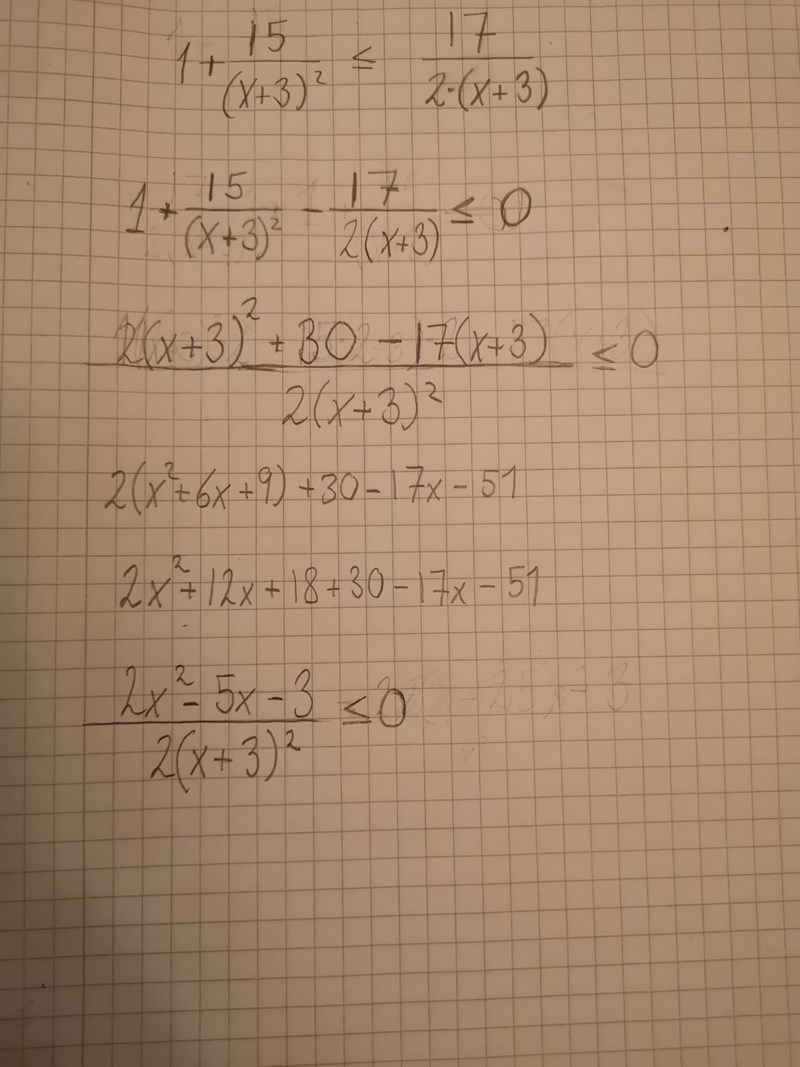 1 + 15/(x+3)² ≤ 17/2·(x+3)
1 + 15/(x+3)² - 17/2(x+3) ≤ 0
2(x+3)² + 30 - 17(x+3) / 2(x+3)² ≤ 0
2(x²+6x+9) + 30 - 17x - 51
2x² + 12x + 18 + 30 - 17x - 51
2x² - 5x - 3 / 2(x+3)² ≤ 0